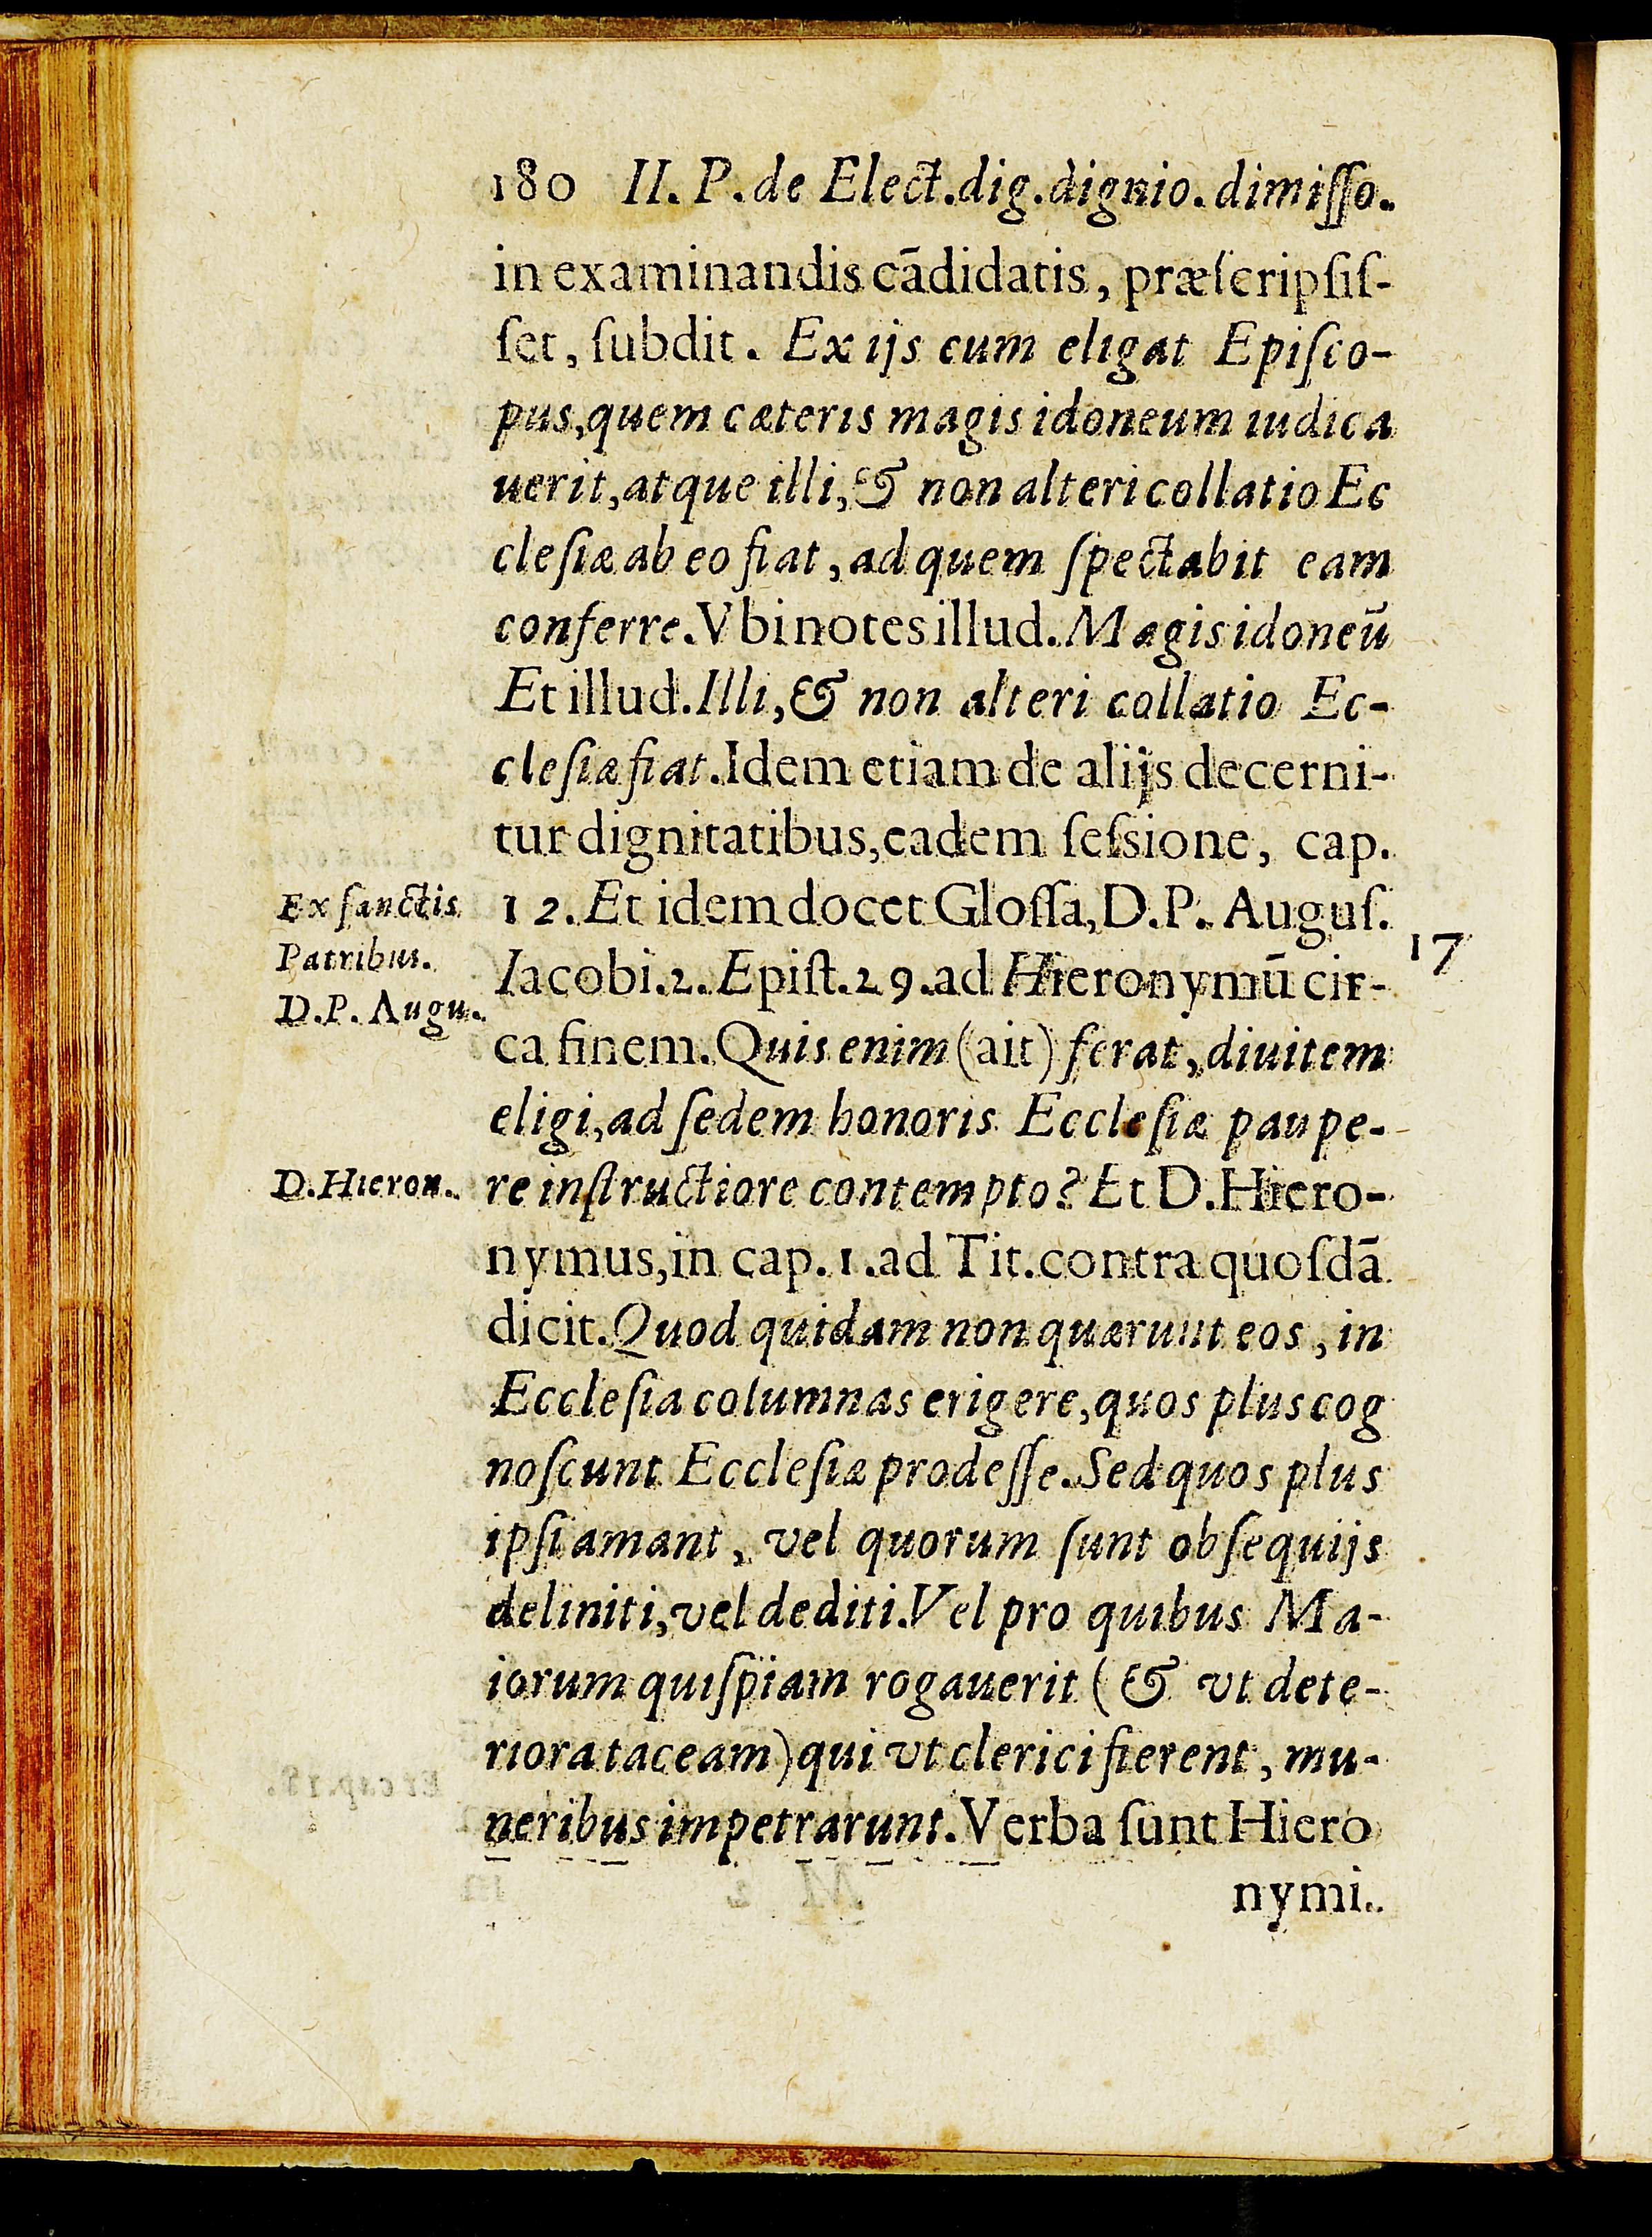 180 II. P. de Elect. dig. dignio. dimiſſo.
in examinandis cãdidatis, præſcripſiſ-
ſet, ſubdit. Ex ijs cum eligat Epiſco-
pus, quem cæteris magis idoneum iudica
uerit, atque illi, & non alteri collatio Ec
cleſiæ ab eo fiat, ad quem ſpectabit eam
conferre. Vbi notes illud. Magis idoneũ
Et illud. Illi, & non alteri collatio Ec-
cleſiæ fiat. Idem etiam de alijs decerni-
tur dignitatibus, eadem ſeſsione, cap.
Ex ſanctis
Patribus.
D.P. Augu.
12. Et idem docet Gloſſa, D.P. Auguſ.
17
Iacobi. 2. Epiſt. 29. ad Hieronymũ cir-
ca finem. Quis enim (ait) ferat, diuitem
eligi, ad ſedem honoris Eccleſiæ paupe-
D. Hieron.
re inſtructiore contempto? Et D. Hiero-
nymus, in cap. 1. ad Tit. contra quoſdã
dicit. Quod quidam non quærunt eos, in
Eccleſia columnas erigere, quos plus cog
noſcunt Eccleſiæ prodeſſe. Sed quos plus
ipſi amant, vel quorum ſunt obſequijs
deliniti, vel dediti. Vel pro quibus Ma-
iorum quiſpiam rogauerit (& vt dete-
riora taceam) qui vt clerici fierent, mu-
neribus impetrarunt. Verba ſunt Hiero
nymi.